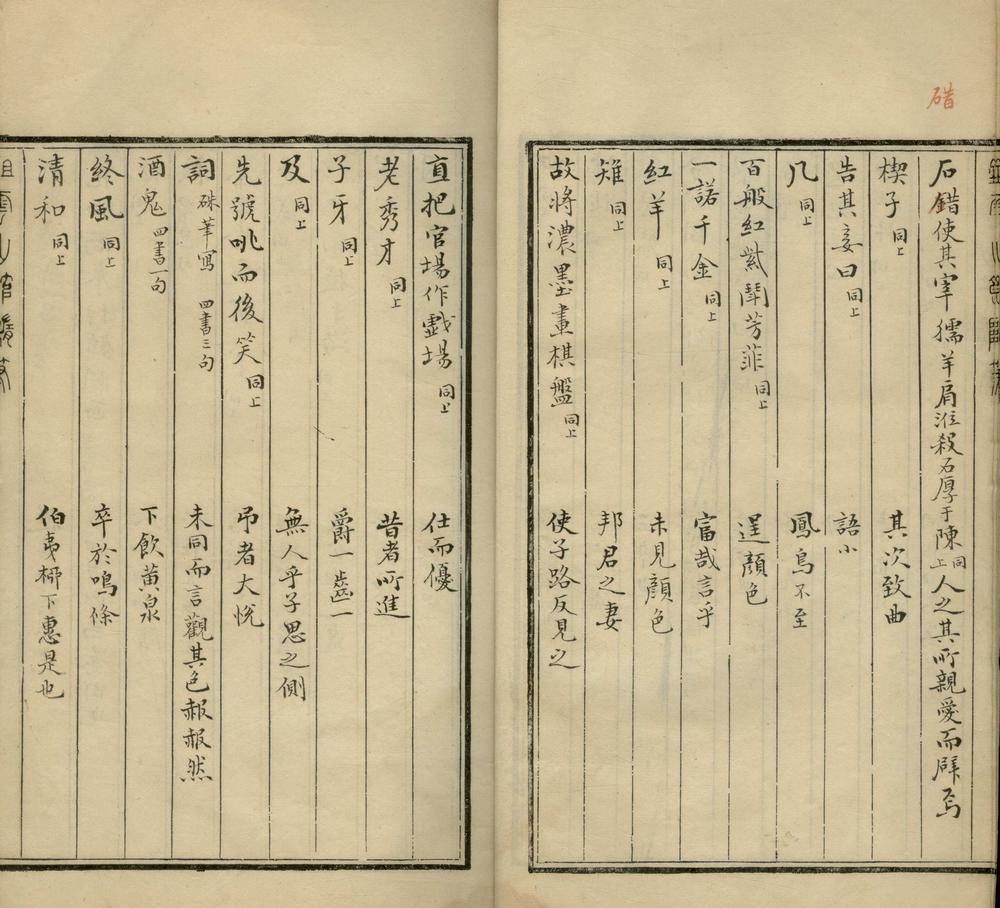 碏
石錯使其宰獳羊肩涖殺石厚于陳 同上 人之其所親愛而辟焉
楔子 同上 其次致曲
告其妾曰 同上 語小
凡 同上 鳳鳥不至
百般紅紫鬪芳菲 同上 逞顏色
一諾千金 同上 富哉言乎
紅羊 同上 未見顏色
雉 同上 邦君之妻
故將濃墨畫棋盤 同上 使子路反見之
直把官場作戲場 同上 仕而優
老秀才 同上 昔者所進
子牙 同上 爵一齒一
及 同上 無人乎子思之側
先號咷而後笑 同上 弔者大悅
詞 硃筆寫 四書三句 未同而言觀其色赧赧然
酒鬼 四書一句 下飲黃泉
終風 同上 卒於鳴條
清和 同上 伯夷柳下惠是也